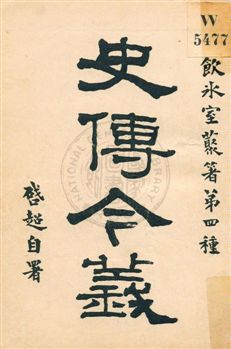 W
5477
飲氷室叢著第四種
史傳今義
啓超自署
NATIONAL LIBRARY